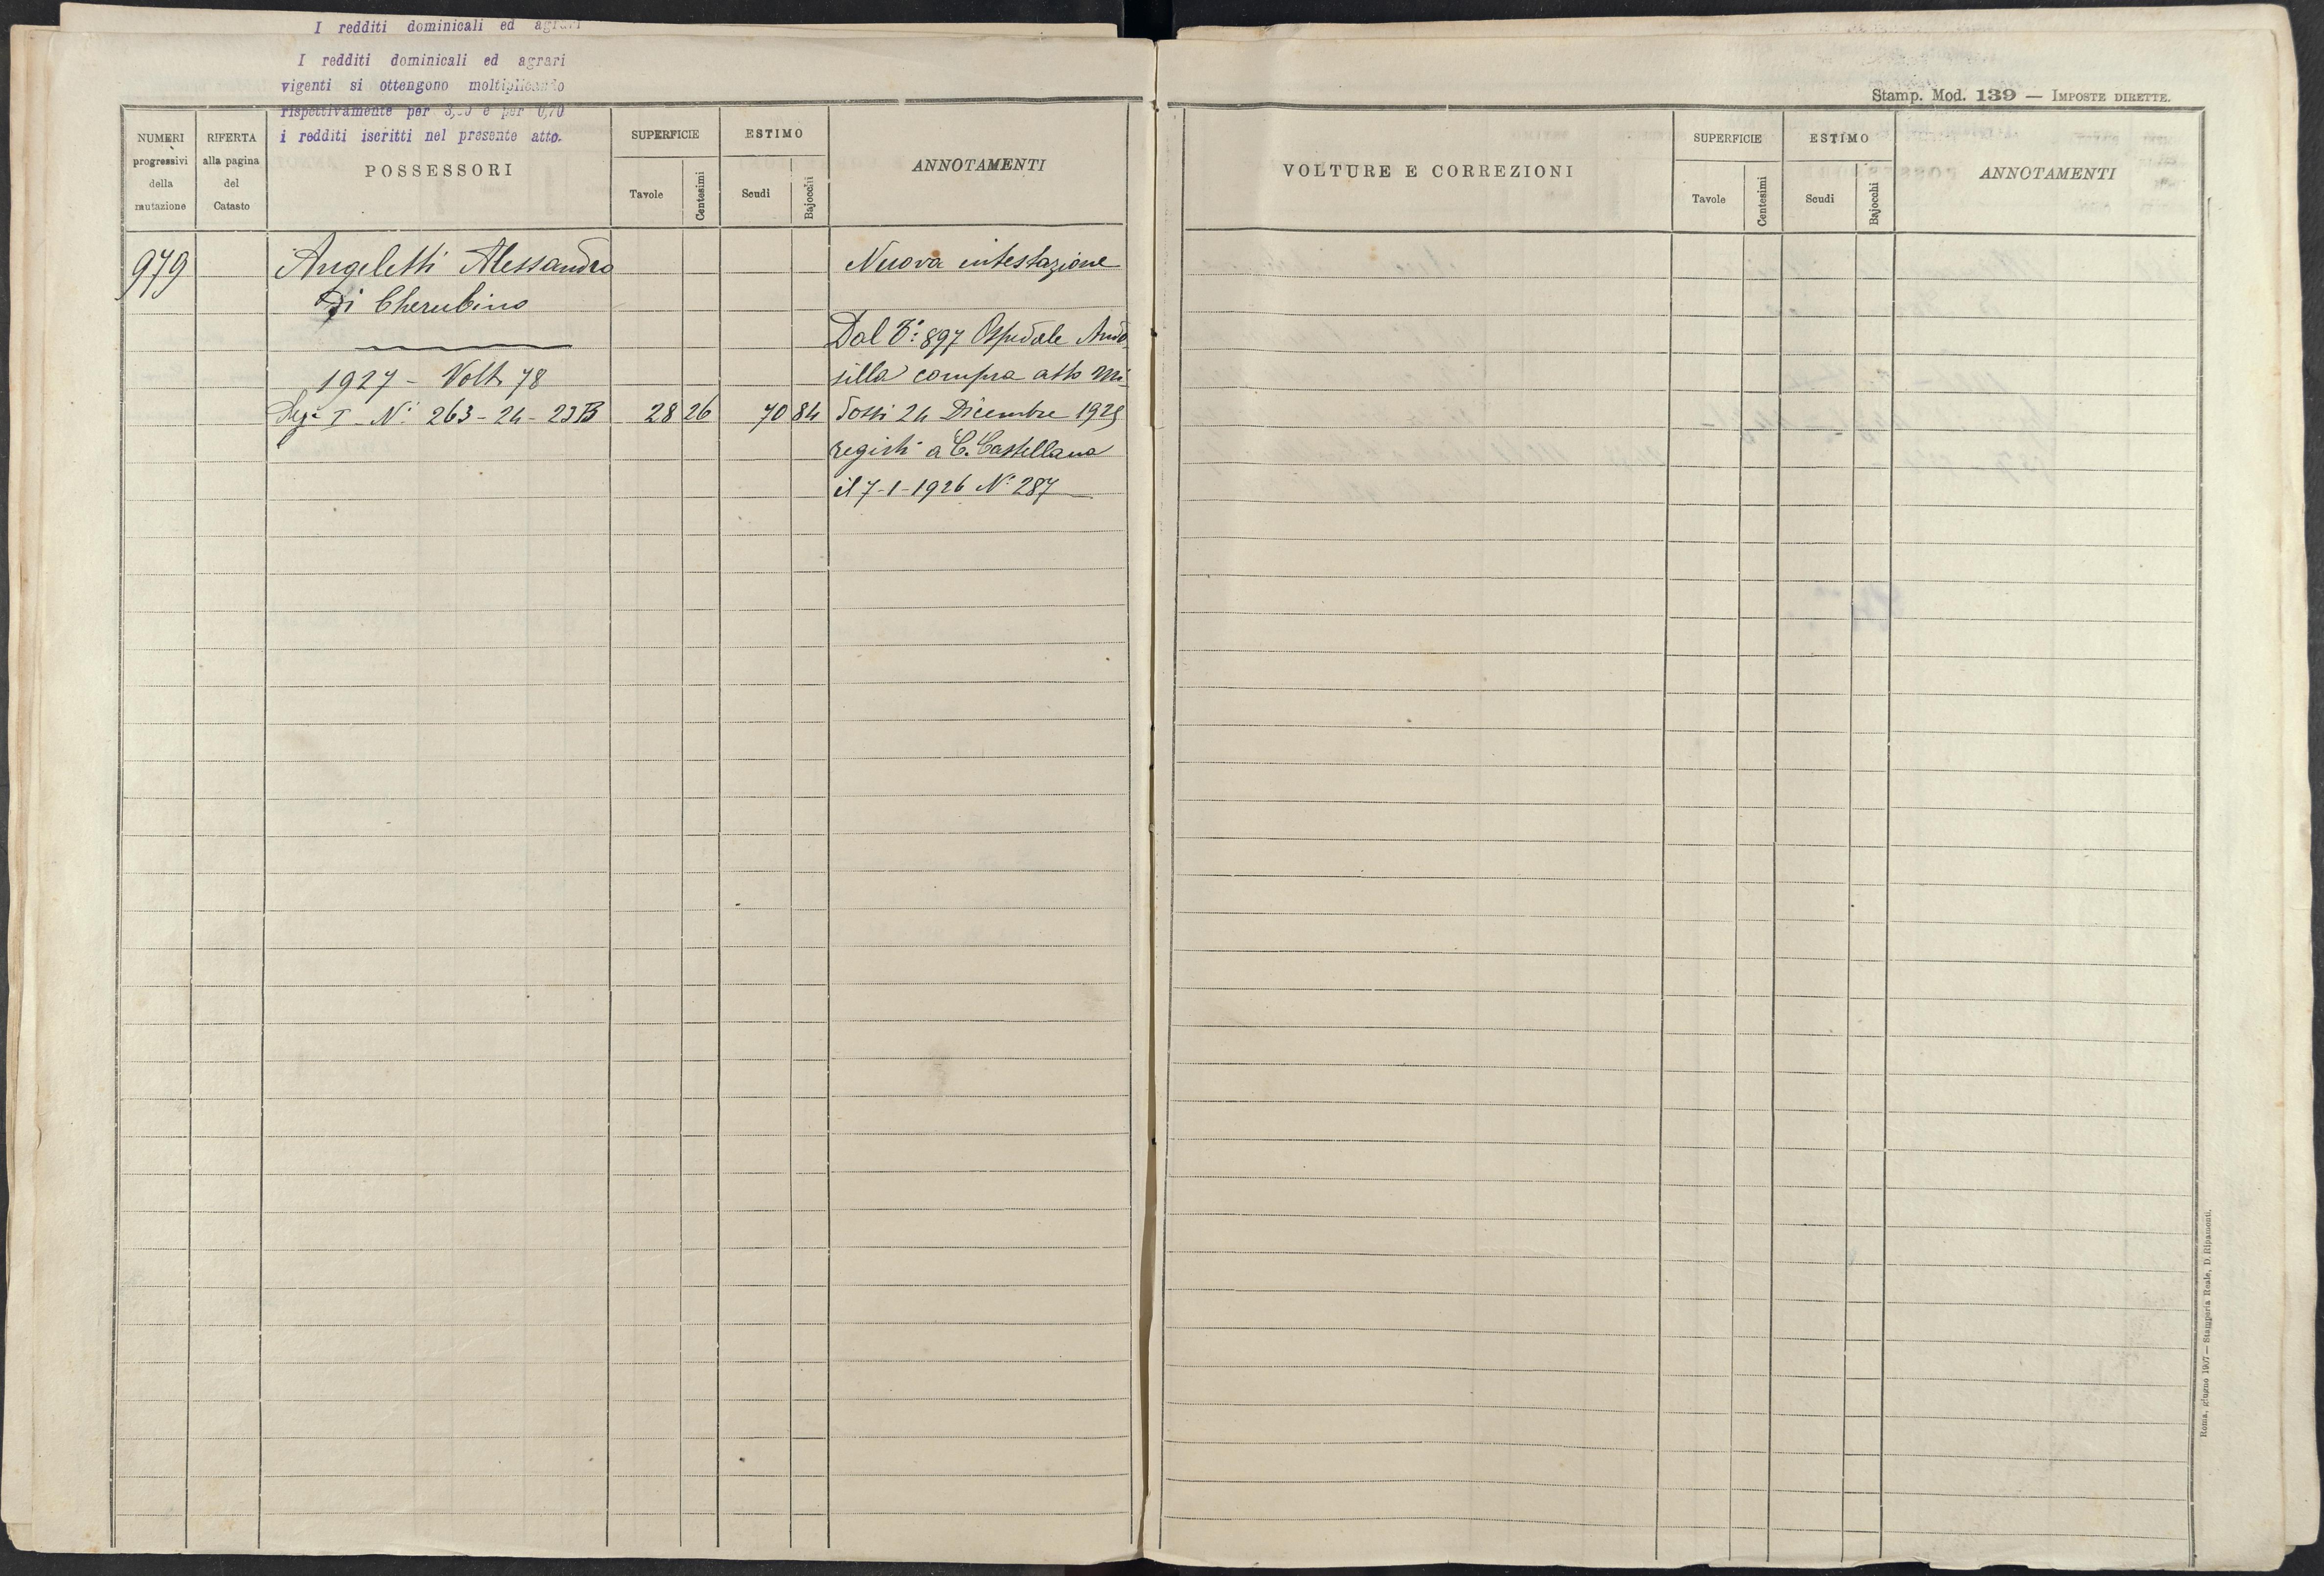 I redditi dominicali ed agrari
I redditi dominicali ed agrari
vigenti si ottengono moltiplicando
rispettivamente per e per 0,70
i redditi iscritti nel presente atto.
NUMERI
progressivi
della
mutazione
RIFERTA
alla pagina
del
Catasto
POSSESSORI
SUPERFICIE
Tavole
Centesimi
ESTIMO
Scudi
Bajocchi
ANNOTAMENTI
979
Angeletti Alessandro
di Cherubino
1927 - Volt. 78
Sez. I - N. 263 - 24 - 23B 28 26 70 84
Nuova intestazione
Dal 897 Ospedale Ando-
silla compra atto Mi-
dossi 24 Dicembre 1925
regist a C. Castellana
il 7-1-1926 N. 287
Stamp. Mod. 139 — IMPOSTE DIRETTE.
VOLTURE E CORREZIONI
SUPERFICIE
Tavole
Centesimi
ESTIMO
Scudi
Bajocchi
ANNOTAMENTI
Roma, giugno 1907 — Stamperia Reale, D. Ripamonti.